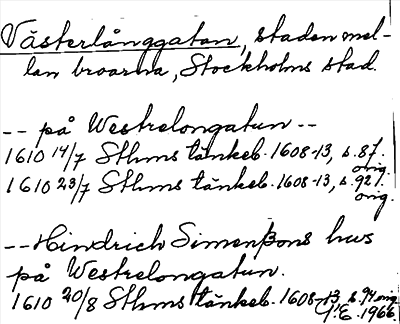 Västerlånggatan, staden mel-
lan broarna, Stockholms stad.
-- på Westrelongatun --
1610 14/7 Sthms tänkeb. 1608-13, s. 87.
orig.
1610 23/7 Sthms tänkeb. 1608-13, s. 92.
orig.
-- Hindrich Simenßons hws
på Westrelongatun.
1610 20/8 Sthms tänkeb. 1608-13, s. 94 orig.
G.E. 1966.